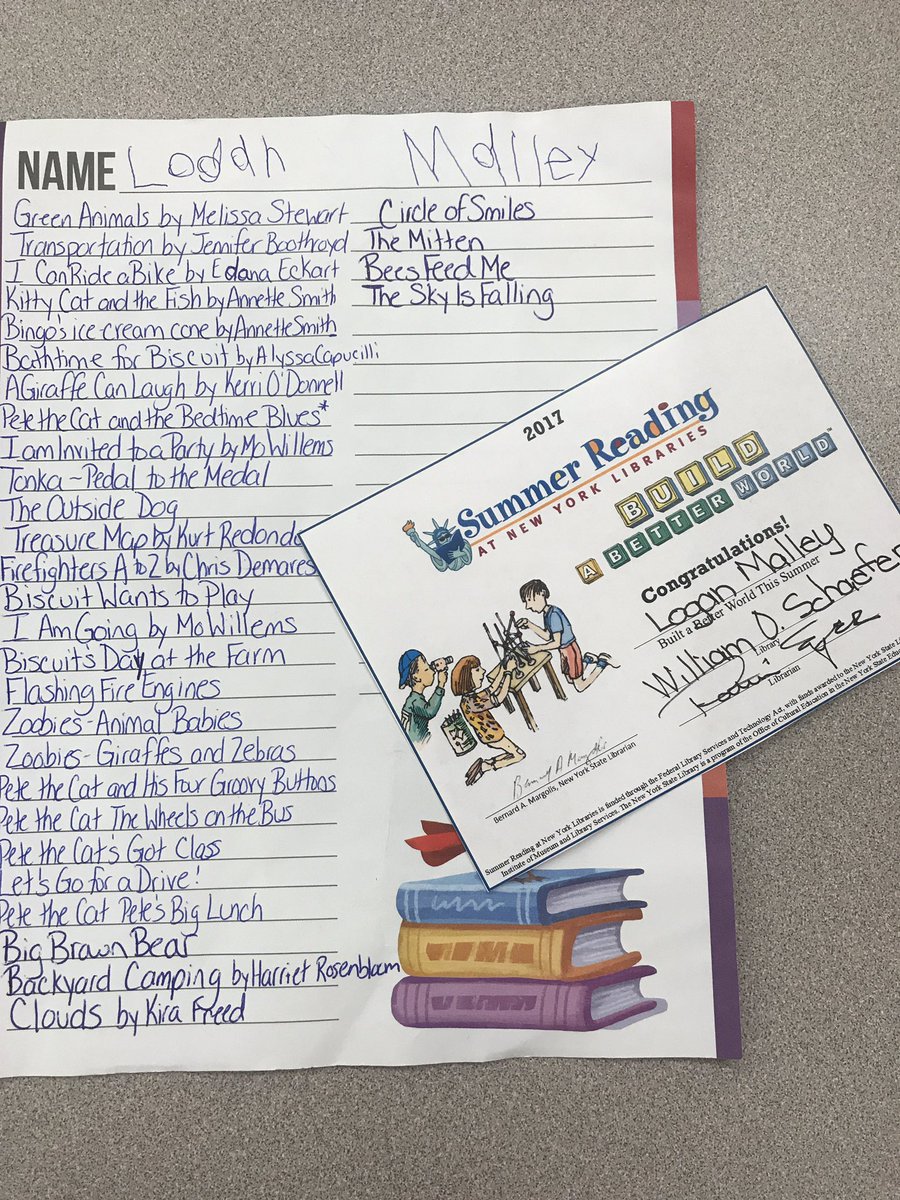 NAME Logan Malley
Green Animals by Melissa Stewart
Transportation by Jennifer Boothroyd
I Can Ride a Bike by Edana Eckart
Kitty Cat and the Fish by Annette Smith
Bingo's ice cream cone by Annette Smith
Bathtime for Biscuit by Alyssa Capucilli
A Giraffe Can Laugh by Kerri O'Donnell
Pete the Cat and the Bedtime Blues*
I am Invited to a Party by Mo Willems
Tonka ~ Pedal to the Medal
The Outside Dog
Treasure Map by Kurt Redondo
Firefighters A to Z by Chris Demares
Biscuit Wants to Play
I Am Going by Mo Willems
Biscuit's Day at the Farm
Flashing Fire Engines
Zoobies-Animal Babies
Zoobies-Giraffes and Zebras
Pete the Cat and His Four Groovy Buttons
Pete the Cat The Wheels on the Bus
Pete the Cat's Got Class
Let's Go for a Drive!
Pete the Cat Pete's Big Lunch
Big Brown Bear
Backyard Camping by Harriet Rosenbloom
Clouds by Kira Freed
Circle of Smiles
The Mitten
Bees Feed Me
The Sky Is Falling
2017
Summer Reading
AT NEW YORK LIBRARIES
BUILD
A BETTER WORLD™
Congratulations!
Logan Malley
Built a Better World This Summer
William O. Schaefer
Library
Librarian
Bernard A. Margolis
Bernard A. Margolis, New York State Librarian
Summer Reading at New York Libraries is funded through the Federal Library Services and Technology Act, with funds awarded to the New York State Li
Institute of Museum and Library Services. The New York State Library is a program of the Office of Cultural Education in the New York State Educ